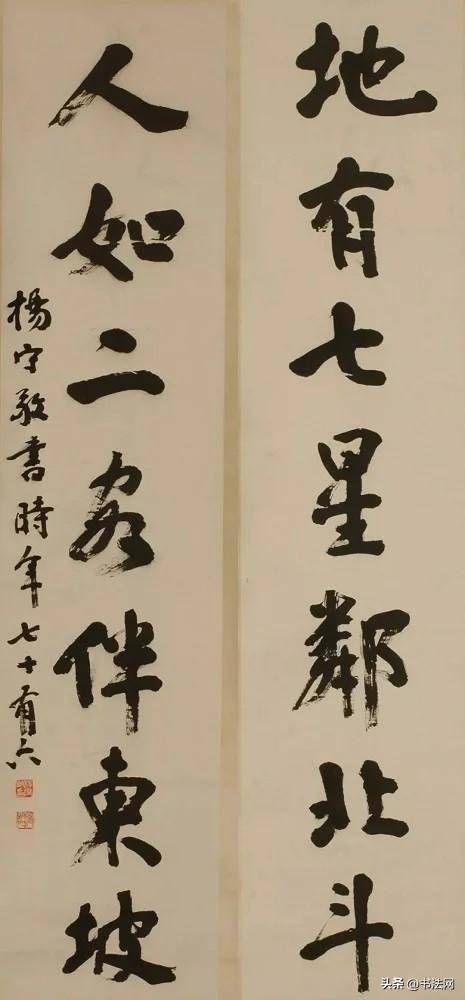 地有七星鄰北斗
人如二客伴東坡
楊守敬書時年七十有六
头条@书法网